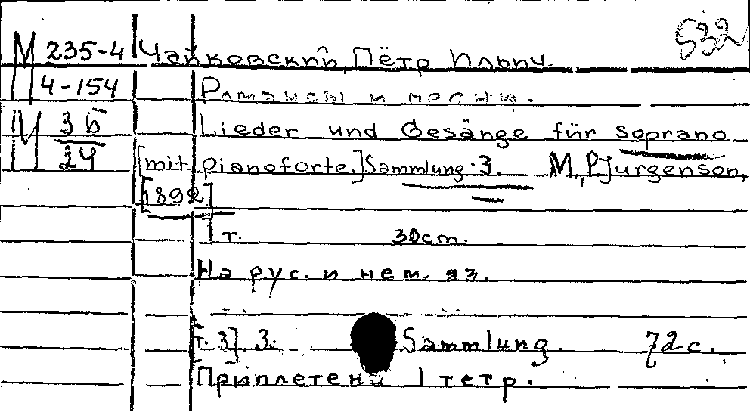 532
М 235-4 Чайковский, Пётр Ильич.
4-154 Романсы и песни.
М 36/24 Lieder und Gesänge für Soprano
[mit pianoforte.] Sammlung 3. М., P. Jurgenson,
[1892]
т. 30cm.
На рус. и нем. яз.
[т. 3]. 3. Sammlung. 72 с.
Приплетена 1 тетр.